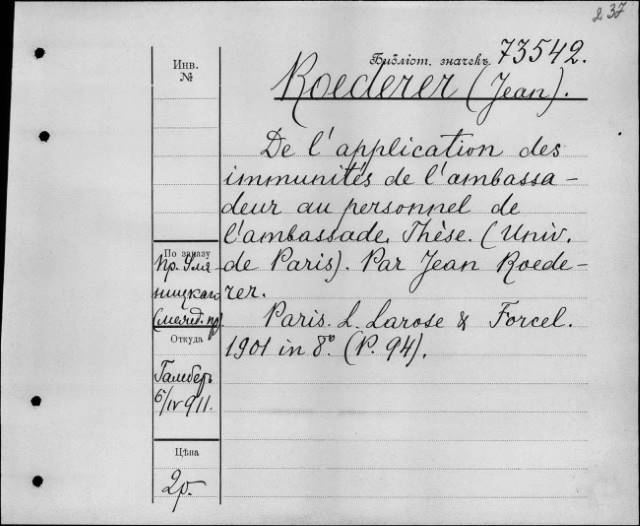 237
Инв.
№
Библіот. значекъ 73542.
Roederer (Jean).
De l'application des
immunités de l'ambassa-
deur au personnel de
l'ambassade. Thèse. (Univ.
de Paris). Par Jean Roede-
rer.
Paris. L. Larose & Forcel.
1901 in 8º. (P. 94).
По заказу
Пр. Уля-
ницкаго
(межд. пр).
Откуда
Гамберъ
5/IV 911.
Цѣна
2р.